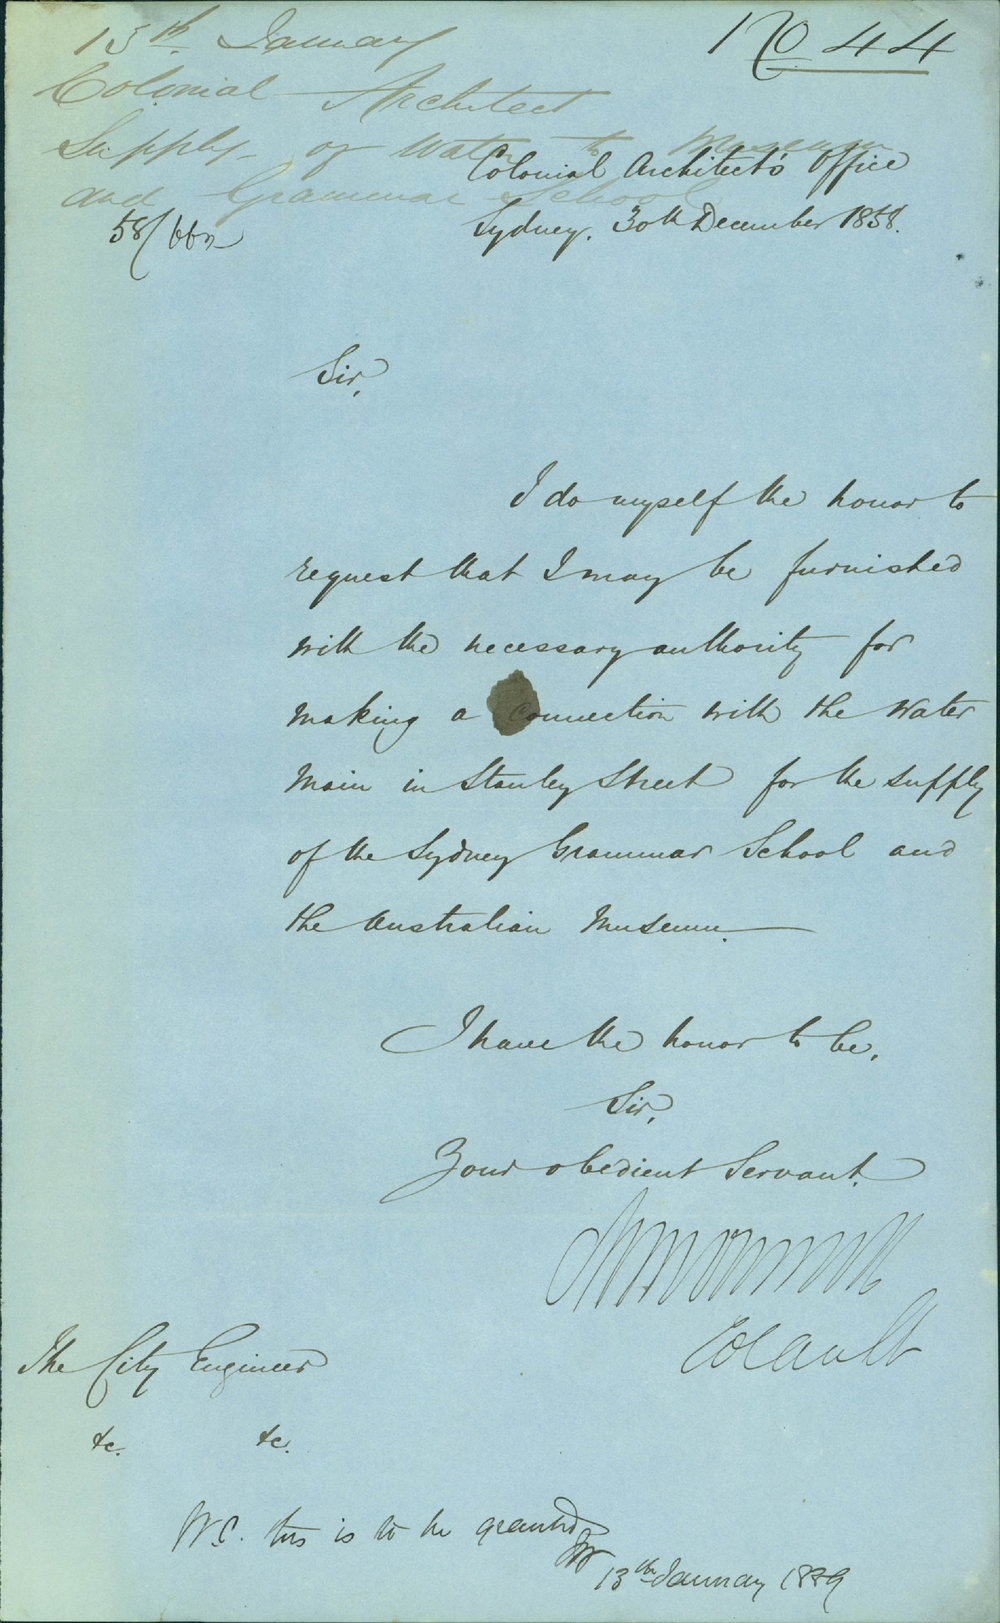 No 44
13th January
Colonial Architect
Supply of Water to Museum
and Grammar School
58/662
Colonial Architect's Office
Sydney. 30th December 1858.
Sir,
I do myself the honor to
request that I may be furnished
with the necessary authority for
making a connection with the Water
Main in Stanley Street for the supply
of the Sydney Grammar School and
the Australian Museum.
I have the honor to be,
Sir,
Your obedient Servant.
Col Archt
The City Engineer
&c. &c.
W.C. this is to be granted
13th January 1859